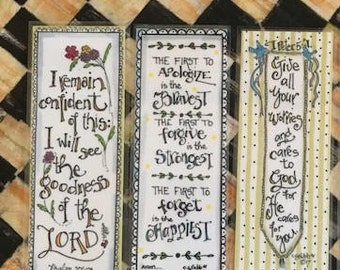 I remain
confident
of this:
I will see
the
goodness
of the
LORD
THE FIRST TO
Apologize
is the
BRAVEST
THE FIRST TO
forgive
is the
STRONGEST
THE FIRST TO
forget
is the
HAPPIEST
Give
all your
worries
and
cares
to
God,
for
He
cares
for
you.